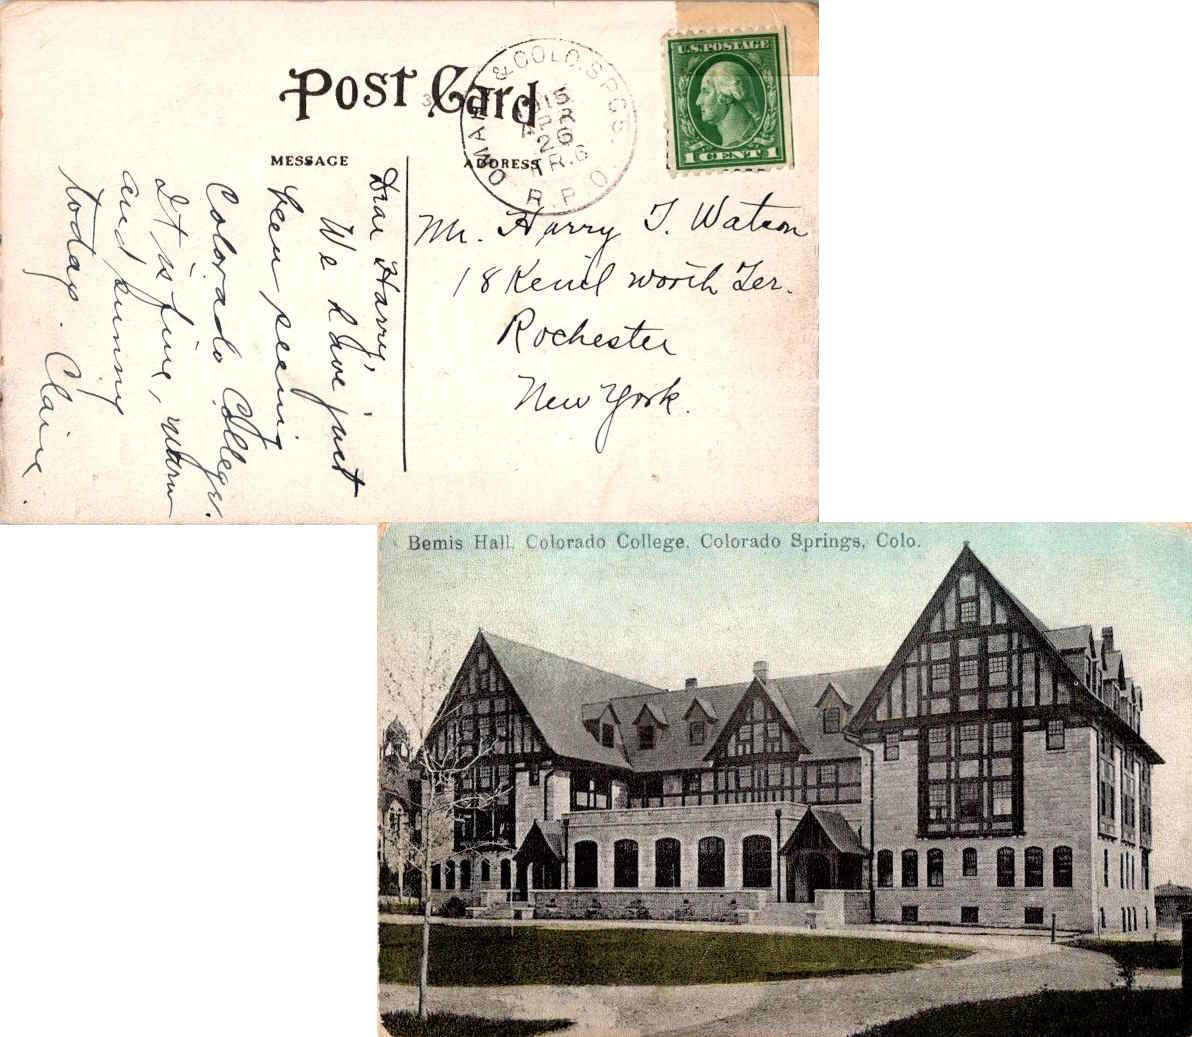 POST CARD
MESSAGE
ADDRESS
OMAHA & COLO. SPGS.
R.P.O.
TR. 6
U.S. POSTAGE
1 CENT 1
Dear Harry,
We have just
been seeing
Colorado College.
It is fine, warm
and sunny
today. Claire.
Mr. Harry T. Watson
18 Kenilworth Ter.
Rochester
New York.
Bemis Hall, Colorado College, Colorado Springs, Colo.